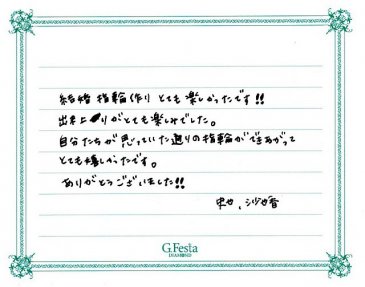 結婚指輪作りとても楽しかったです!!
出来上りがとても楽しみでした。
自分たちが思っていた通りの指輪ができあがって
とても嬉しかったです。
ありがとうございました!!
沙也香
G.Festa
DIAMOND